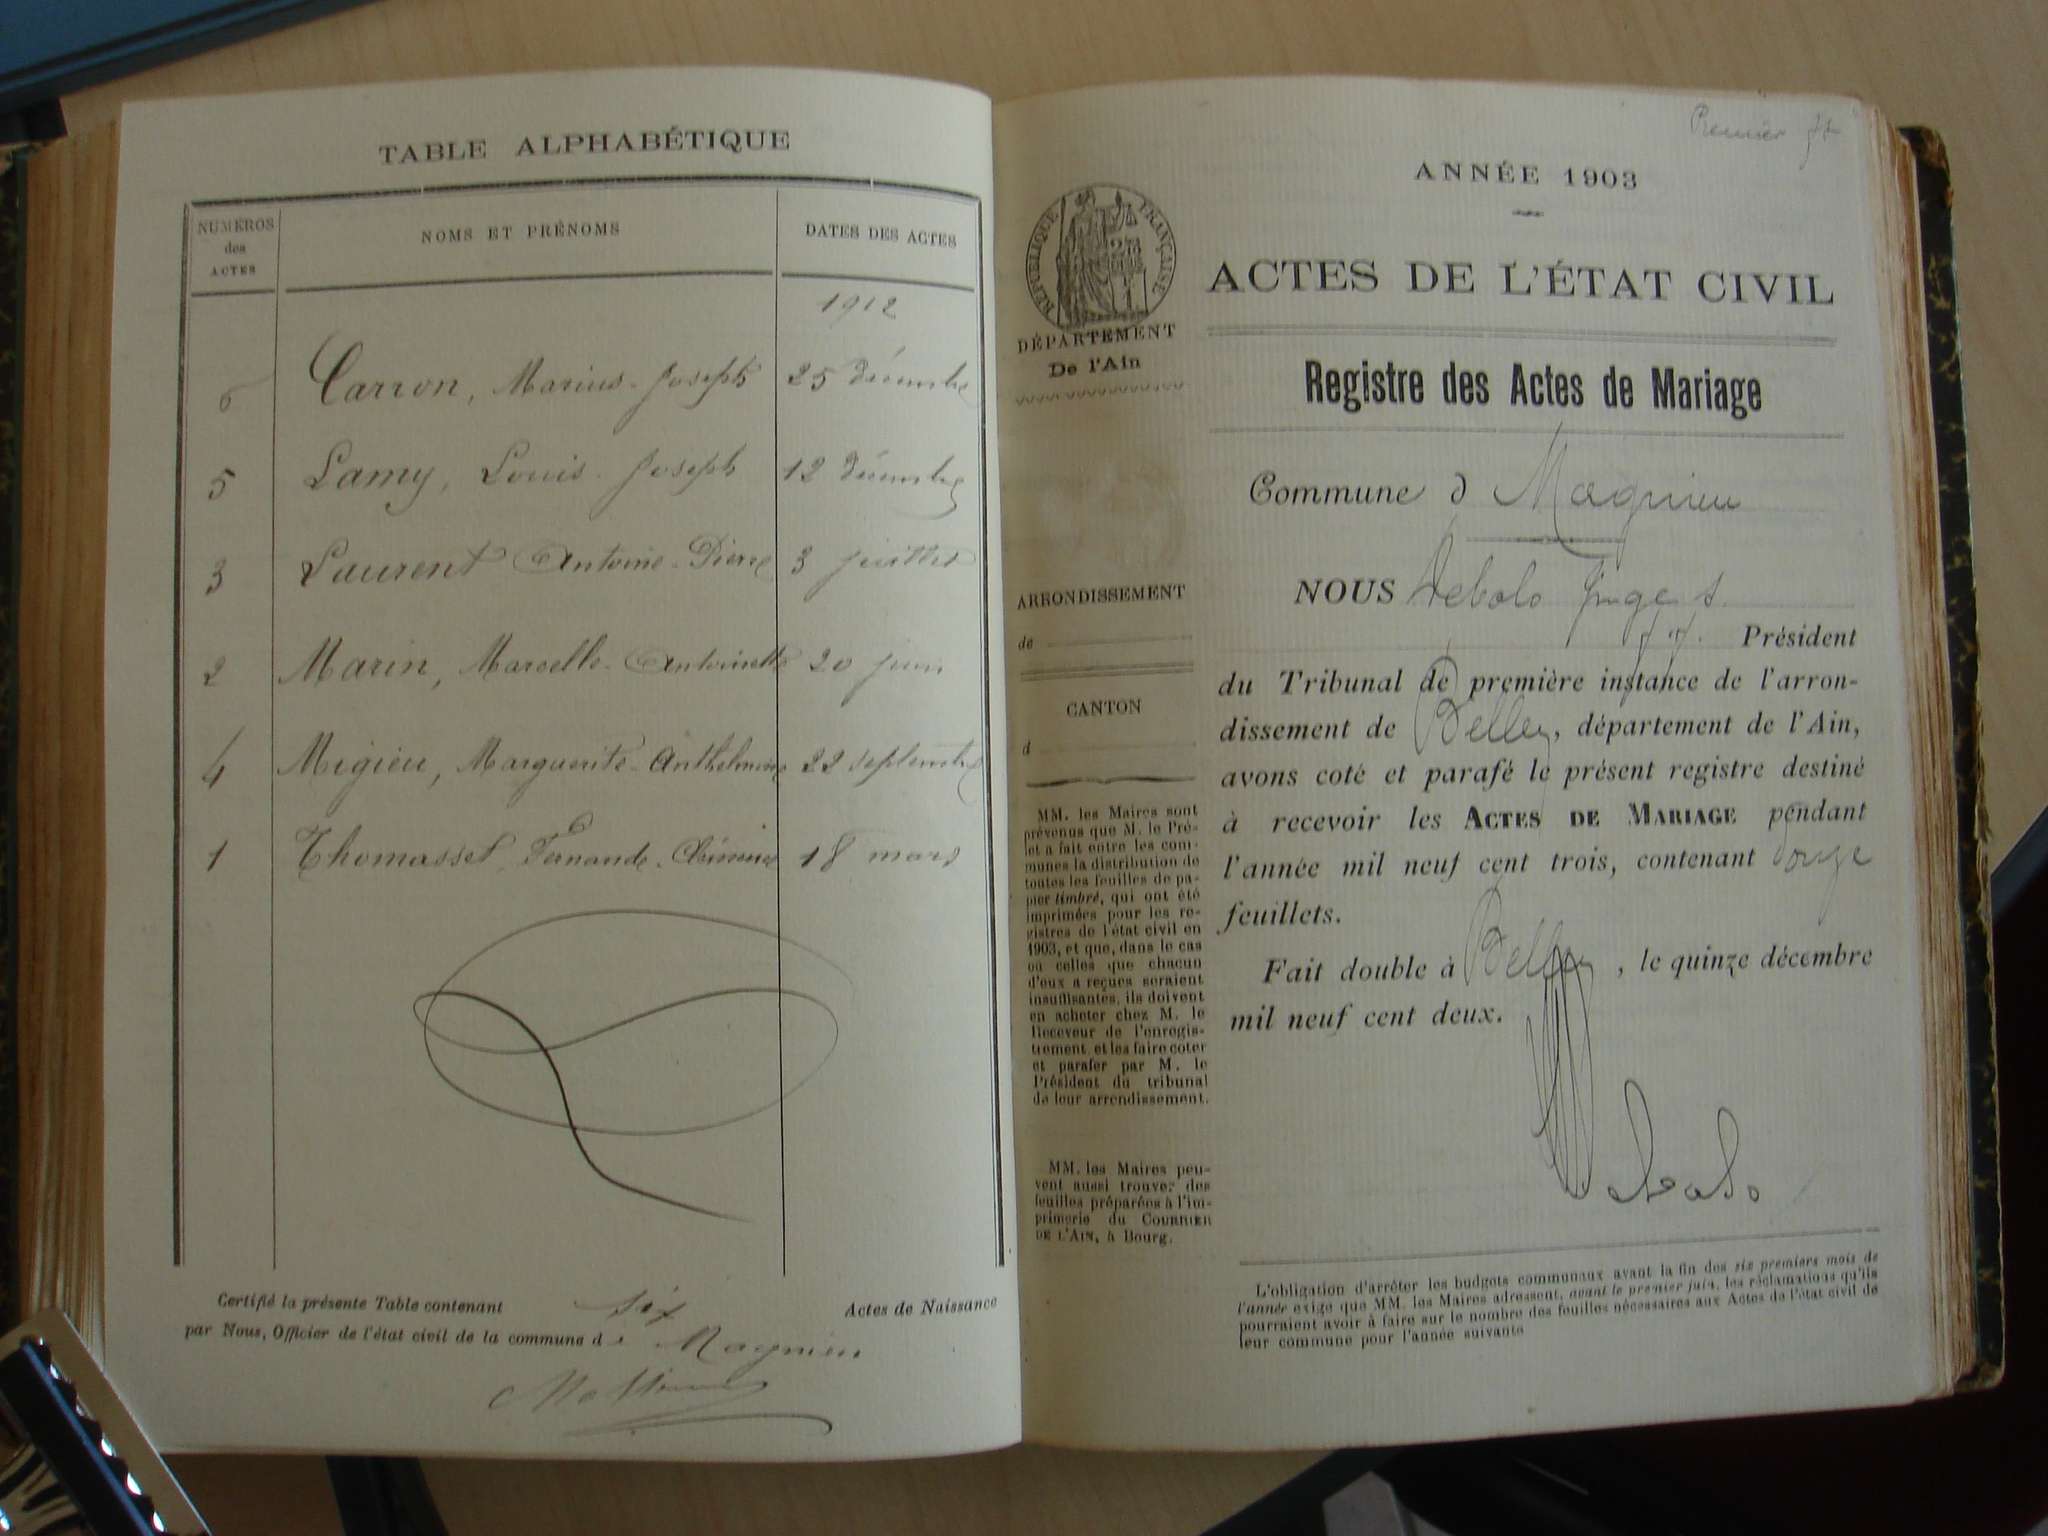 TABLE ALPHABÉTIQUE
NUMÉROS
des
ACTES
NOMS ET PRÉNOMS
DATES DES ACTES
1912
6 Carron, Marius-Joseph 25 décembre
5 Lamy, Louis-Joseph 12 décembre
3 Laurent Antoine-Pierre 3 juillet
2 Marin, Marcelle-Antoinette 20 juin
4 Migieu, Marguerite-Anthelmine 22 septembre
1 Thomasset, Fernande 18 mars
Certifié la présente Table contenant six Actes de Naissance
par Nous, Officier de l'état civil de la commune de Magnieu
Premier
ANNÉE 1903
RÉPUBLIQUE FRANÇAISE
DÉPARTEMENT
De l'Ain
ACTES DE L'ÉTAT CIVIL
Registre des Actes de Mariage
Commune d Magnieu
NOUS Debolo Juge
Président
du Tribunal de première instance de l'arron-
dissement de Belley, département de l'Ain,
avons coté et parafé le présent registre destiné
à recevoir les ACTES DE MARIAGE pendant
l'année mil neuf cent trois, contenant douze
feuillets.
Fait double à Belley, le quinze décembre
mil neuf cent deux.
Debolo
ARRONDISSEMENT
de
CANTON
d
MM. les Maires sont
prévenus que M. le Pré-
fet a fait entre les com-
munes la distribution de
toutes les feuilles de pa-
pier timbré, qui ont été
imprimées pour les re-
gistres de l'état civil en
1903, et que, dans le cas
où celles que chacun
d'eux a reçues seraient
insuffisantes, ils doivent
en acheter chez M. le
Receveur de l'enregis-
trement, et les faire coter
et parafer par M. le
Président du tribunal
de leur arrondissement.
MM. les Maires peu-
vent aussi trouver des
feuilles préparées à l'im-
primerie du COURRIER
DE L'AIN, à Bourg.
L'obligation d'arrêter les budgets communaux avant la fin des six premiers mois de
l'année exige que MM. les Maires adressent, avant le premier juin, les réclamations qu'ils
pourraient avoir à faire sur le nombre des feuilles nécessaires aux Actes de l'état civil de
leur commune pour l'année suivante